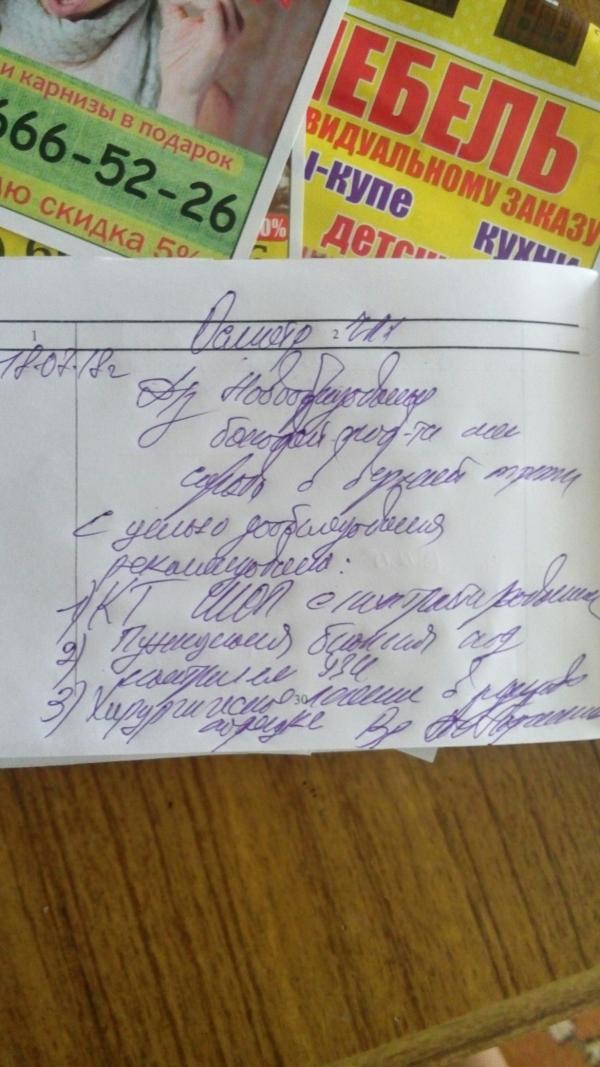 и карнизы в подарок
666-52-26
аю скидка 5%
0%
МЕБЕЛЬ
ВИДУАЛЬНОМУ ЗАКАЗУ
ы-купе
кухни
детск
1
2
Осмотр ЧЛХ
18.07.18г
Дз Новообразование
боковой пов-ти шеи
справа в верхней трети
С целью дообследования
рекомендовано:
1) КТ ШОП с контрастированием
2) Пункционная биопсия под
контролем УЗИ
3) Хирургическое лечение в плановом
30
порядке Вр